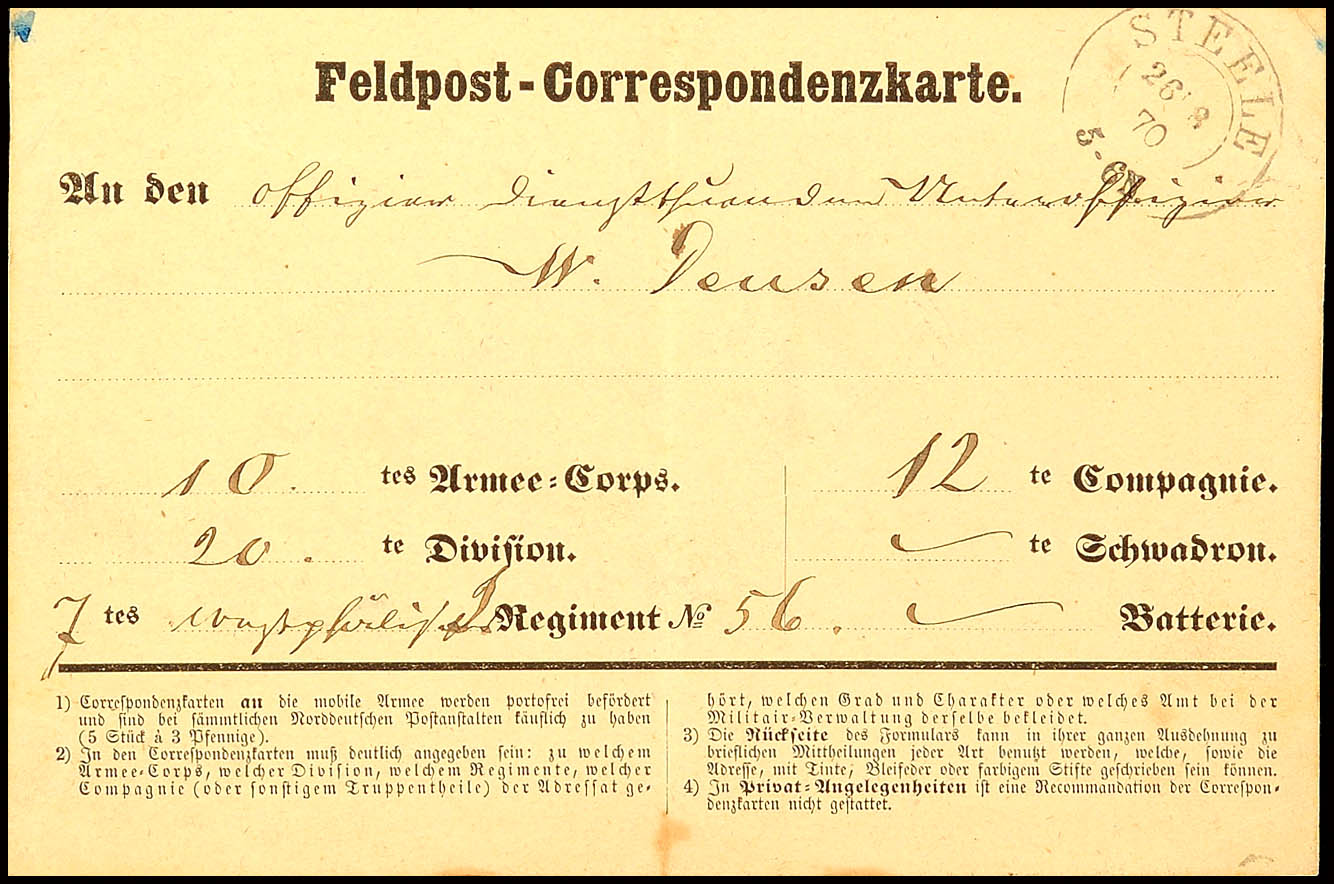 Feldpost-Correspondenzkarte.
STEELE
26 8
70
5-6N
An den Offizier Dienstthuenden Unteroffizier
W. Deusen
10. tes Armee-Corps.
12 te Compagnie.
20. te Division.
te Schwadron.
7 tes westphälisch. Regiment No 56.
Batterie.
1) Correspondenzkarten an die mobile Armee werden portofrei befördert
und sind bei sämmtlichen Norddeutschen Postanstalten käuflich zu haben
(5 Stück à 3 Pfennige).
2) In den Correspondenzkarten muß deutlich angegeben sein: zu welchem
Armee-Corps, welcher Division, welchem Regimente, welcher
Compagnie (oder sonstigem Truppentheile) der Adressat ge-
hört, welchen Grad und Charakter oder welches Amt bei der
Militair-Verwaltung derselbe bekleidet.
3) Die Rückseite des Formulars kann in ihrer ganzen Ausdehnung zu
brieflichen Mittheilungen jeder Art benutzt werden, welche, sowie die
Adresse, mit Tinte, Bleifeder oder farbigem Stifte geschrieben sein können.
4) In Privat-Angelegenheiten ist eine Recommandation der Correspon-
denzkarten nicht gestattet.